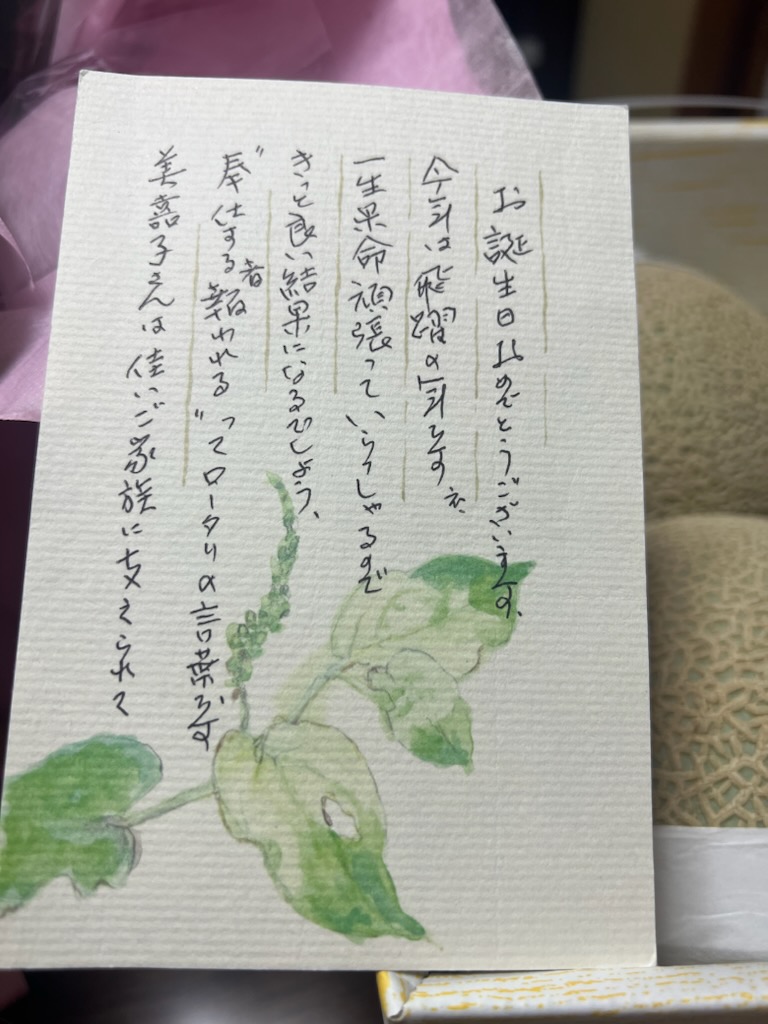 お誕生日おめでとうございます、
今年は飛躍の年ですネ
一生果命頑張っていらっしゃるので
きっと良い結果になるでしょう、
〝奉仕する者報われる〟ってロータリの言葉です
美嘉子さんは佳いご家族に支えられて